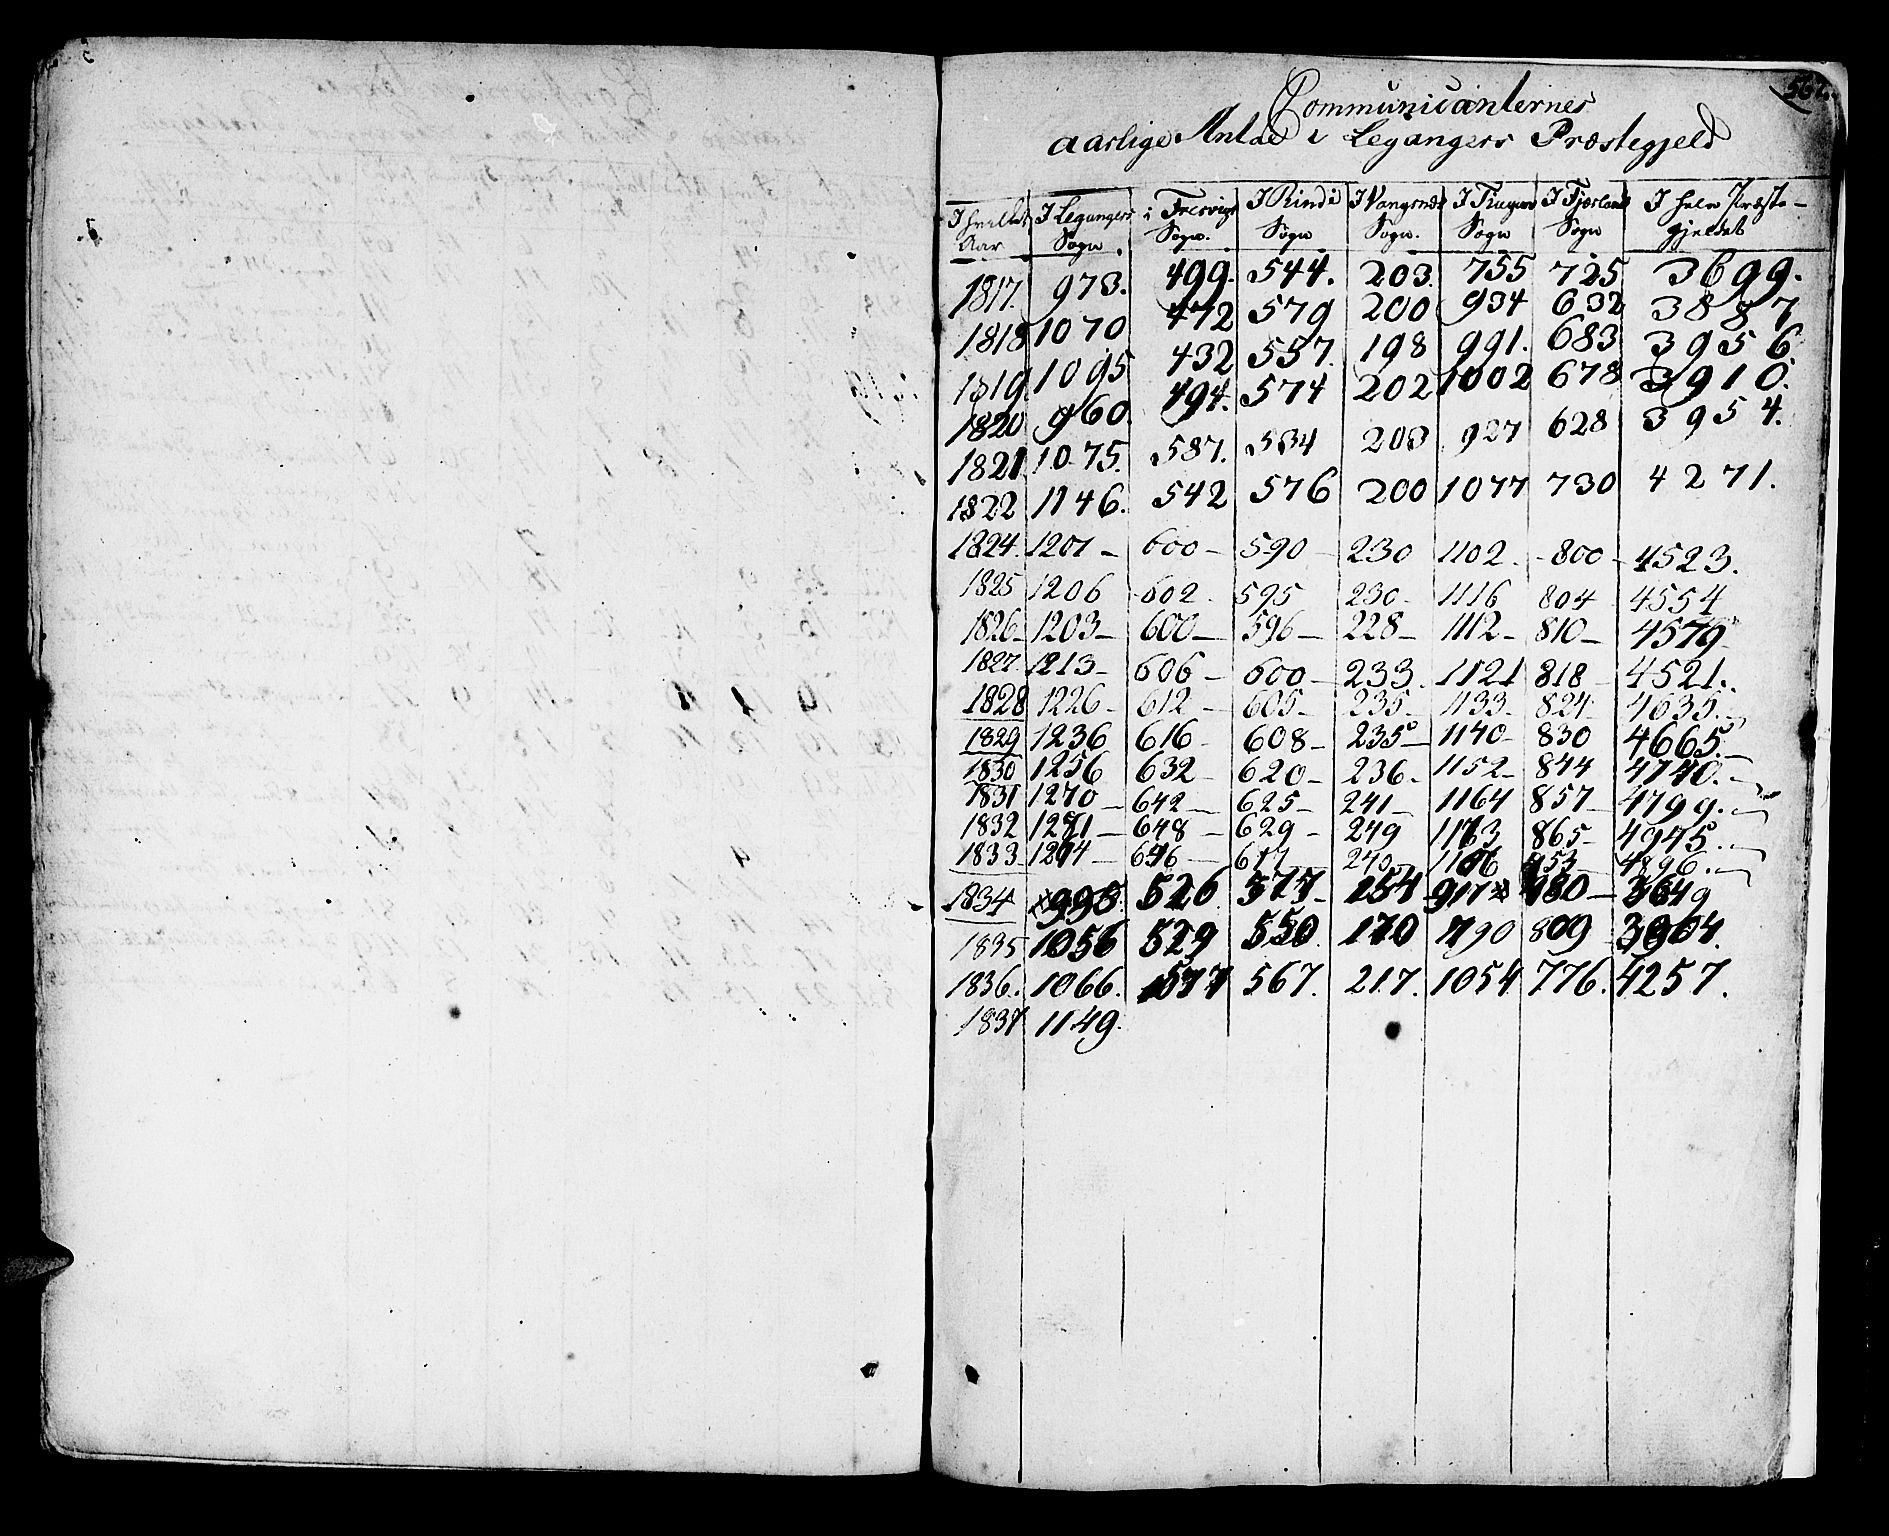 Communicanternes
aarlige Antal i Legangers Præstegjeld
I hvilket Aar | I Legangers Sogn | i Fresvigs Sogn. | I Rinde Sogn | I Vangsnes Sogn. | I Sogn | I Fjærlands Sogn | I hele Præste-gjeldet
1817. 973. 499. 544. 203. 755 725 3699.
1818 1070 472 579 200 934 632 3887
1819 1095 432 557. 198 991. 683 3956
1820 960. 494. 574 202 1002 678 3910.
1821 1075. 587. 534 203 927 628 3954.
1822 1146. 542 576 200 1077 730 4271.
1824. 1201 - 600 - 590 - 230 1102. - 800 - 4523.
1825 1206 602 - 595 230 - 1116 804 - 4554
1826 - 1203 - 600 - 596 - 228 - 1112 - 810 - 4579
1827 1213 - 606 - 600 - 233. 1121 818 - 4521.
1828 1226 - 612 - 605 - 235 - 1133 - 824 - 4635.
1829 1236 616 - 608 - 235 - 1140 - 830 4665.
1830 1256 632 - 620 - 236 - 1152 - 844 4740.
1831 1270 - 642 - 625 - 241 - 1164 857 - 4799.
1832 1281 - 648 - 629 - 249 1173 865 - 4945.
1833 - 646 - 617 - 240 - 4896.
1834 998 526 577 - 154 917 3649
1835 1056 529 550. 170 790 809 3904.
1836. 1066. 577 567. 217. 1054 776. 4257.
1837 1149.